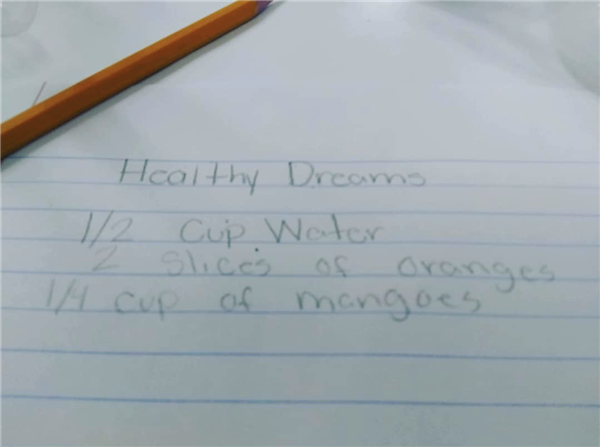 Healthy Dreams
1/2 Cup Water
2 Slices of oranges
1/4 cup of mangoes